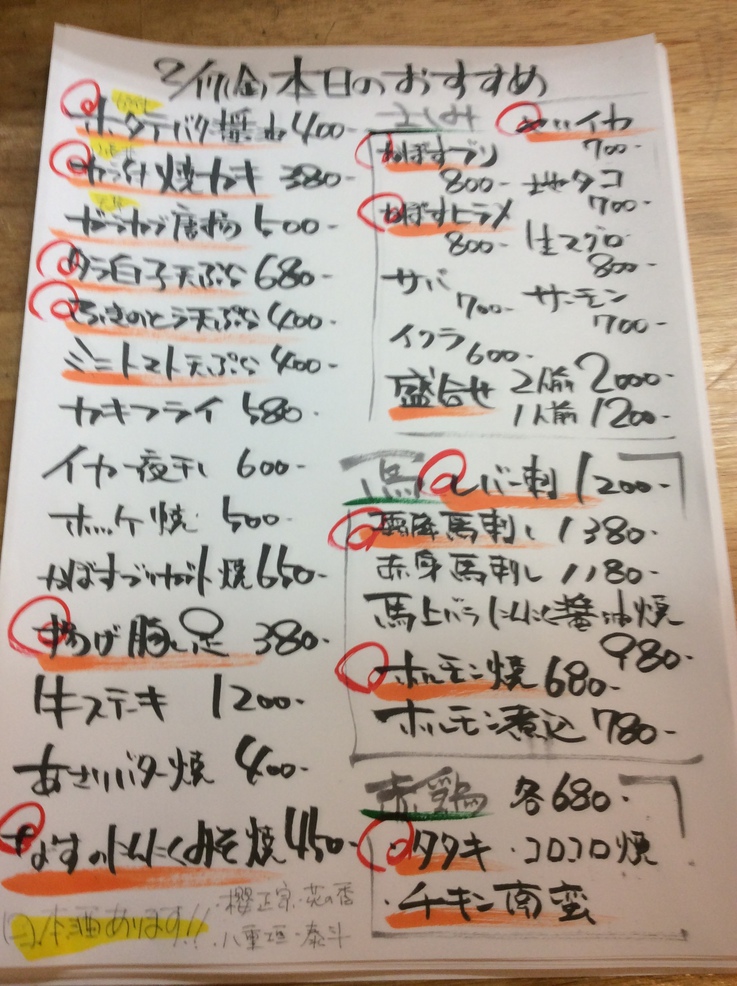 2/17(金)本日のおすすめ
ホタテバター醤油 400-
殻付焼カキ 380-
ガラカブ唐揚 500-
タラ白子天ぷら 680-
ふきのとう天ぷら 400-
ミニトマト天ぷら 400-
カキフライ 580-
イカ一夜干し 600-
ホッケ焼 500-
焼 650-
揚げ豚足 380-
牛ステーキ 1200-
あさりバター焼 400-
なすのにんにくみそ焼 450-
日本酒あります!!
・櫻正宗・花の香
・八重垣・泰斗
さしみ
かぼすブリ 800-
かぼすヒラメ 800-
サバ 700-
イクラ 600-
イカ 700-
地タコ 700-
生マグロ 800-
サーモン 700-
盛合せ 2人前 2000-
1人前 1200-
馬
レバー刺 1200-
霜降馬刺し 1380-
赤身馬刺し 1180-
馬上バラにんにく醤油焼 980-
ホルモン焼 680-
ホルモン煮込 780-
赤鶏 各680-
・タタキ ・コロコロ焼
・チキン南蛮